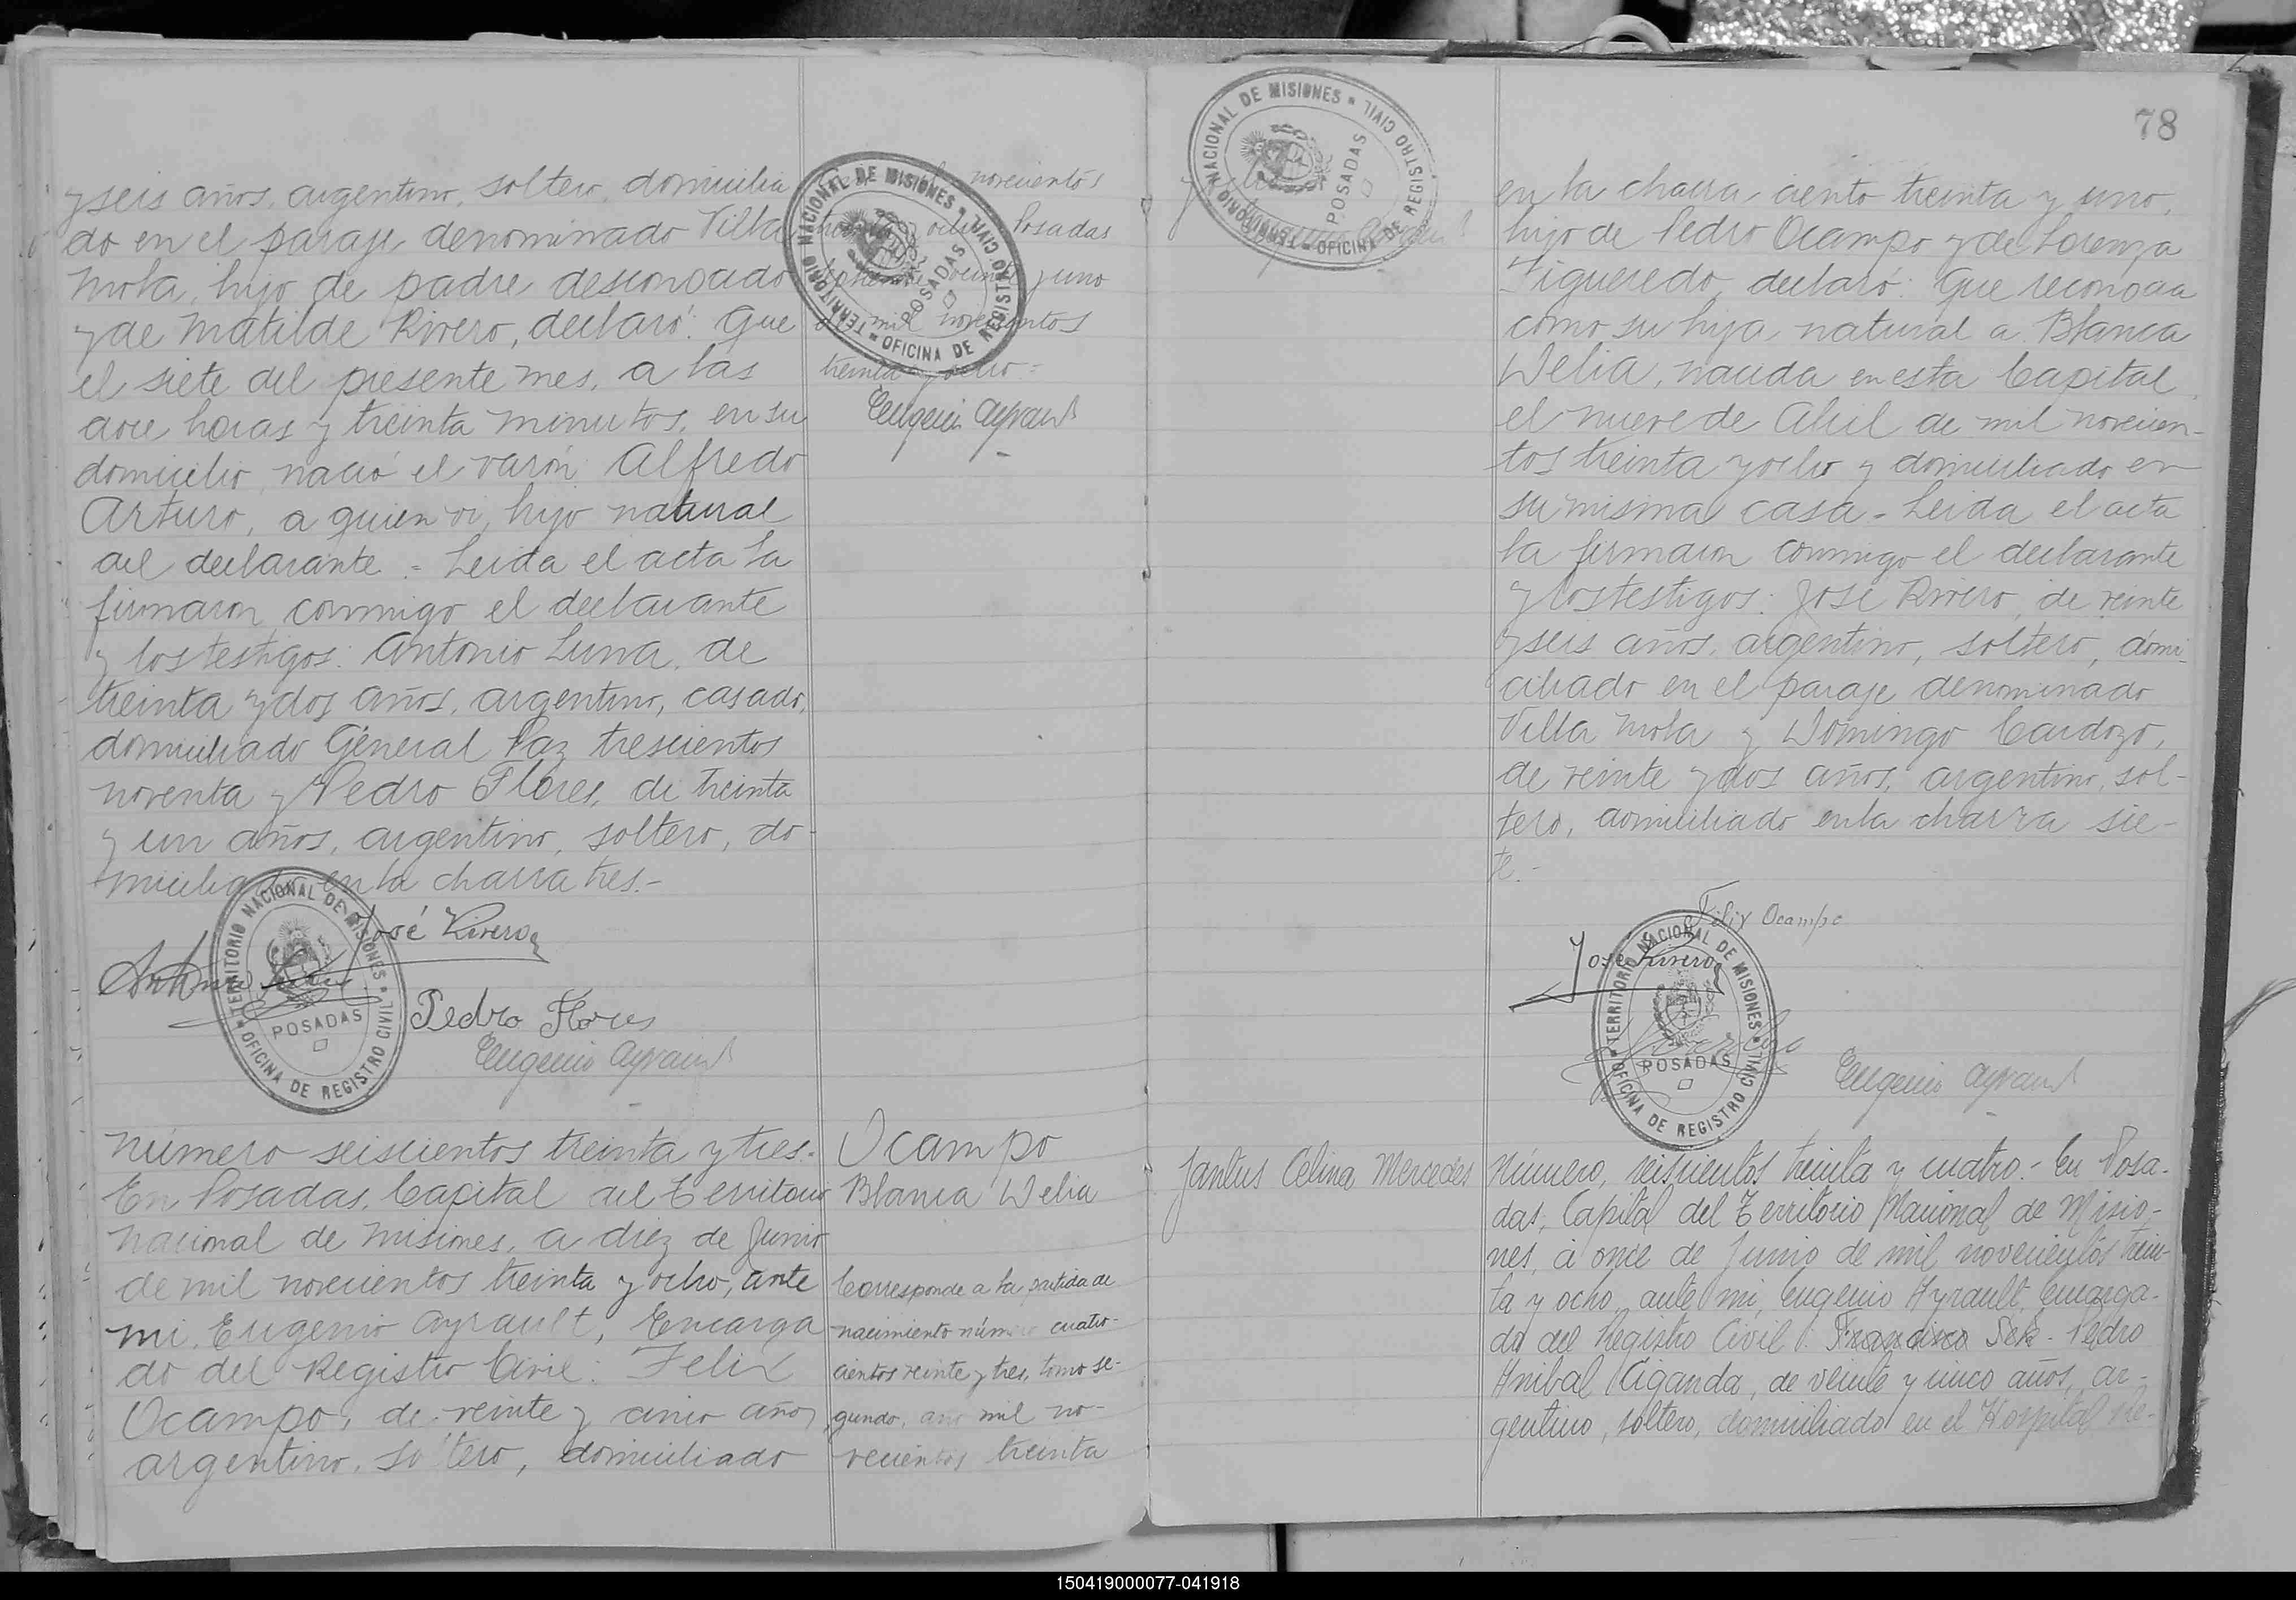 y seis años, argentino, soltero, domicilia
do en el paraje denominado Villa
Mola, hijo de padre desconocido
y de Matilde Rivero, declaró: Que
el siete del presente mes, a las
doce horas y treinta minutos, en su
domicilio, nació el varón Alfredo
Arturo, a quien vi, hijo natural
del declarante = Leida el acta la
firmaron conmigo el declarante
y los testigos: Antonio Luna, de
treinta y dos años, argentino, casado,
domiciliado General Paz trescientos
noventa y Pedro Flores, de treinta
y un años, argentino, soltero, do-
miciliado en la chacra tres.-
José Rivero
Antonio Luna
Pedro Flores
Eugenio Ayrault
TERRITORIO NACIONAL DE MISIONES
POSADAS
OFICINA DE REGISTRO CIVIL
Número seiscientos treinta y tres.
En Posadas, Capital del Territorio
Nacional de Misiones, a diez de Junio
de mil novecientos treinta y ocho, ante
mi, Eugenio Ayrault, Encarga
do del Registro Civil: Felix
Ocampo, de veinte y cinco años,
argentino, soltero, domiciliado
novecientos
treinta y ocho Posadas
veinte y uno
de mil novecientos
treinta y ocho =
Eugenio Ayrault
TERRITORIO NACIONAL DE MISIONES
POSADAS
OFICINA DE REGISTRO CIVIL
Ocampo
Blanca Welia
Corresponde a la partida de
nacimiento número cuatro-
cientos veinte y tres, tomo se-
gundo, año mil no-
vecientos treinta
TERRITORIO NACIONAL DE MISIONES
POSADAS
OFICINA DE REGISTRO CIVIL
78
en la chacra ciento treinta y uno,
hijo de Pedro Ocampo y de Lorenza
Figueredo, declaró: Que reconocia
como su hija natural a Blanca
Welia, nacida en esta Capital
el nueve de Abril de mil novecien-
tos treinta y ocho y domiciliado en
su misma casa - Leida el acta
la firmaron conmigo el declarante
y los testigos: José Rivero, de veinte
y seis años, argentino, soltero, domi-
ciliado en el paraje denominado
Villa Mola y Domingo Cardozo,
de veinte y dos años, argentino, sol-
tero, domiciliado en la chacra sie-
te.-
Felix Ocampo
José Rivero
Eugenio Ayrault
TERRITORIO NACIONAL DE MISIONES
POSADAS
OFICINA DE REGISTRO CIVIL
Santus Celina Mercedes
Número, seiscientos treinta y cuatro.- En Posa-
das, Capital del Territorio Nacional de Misio-
nes, a once de Junio de mil novecientos trein-
ta y ocho, ante mi, Eugenio Ayrault, Encarga-
do del Registro Civil: Francisco Pedro
Anibal Ciganda, de veinte y cinco años, ar-
gentino, soltero, domiciliado en el Hospital
150419000077-041918